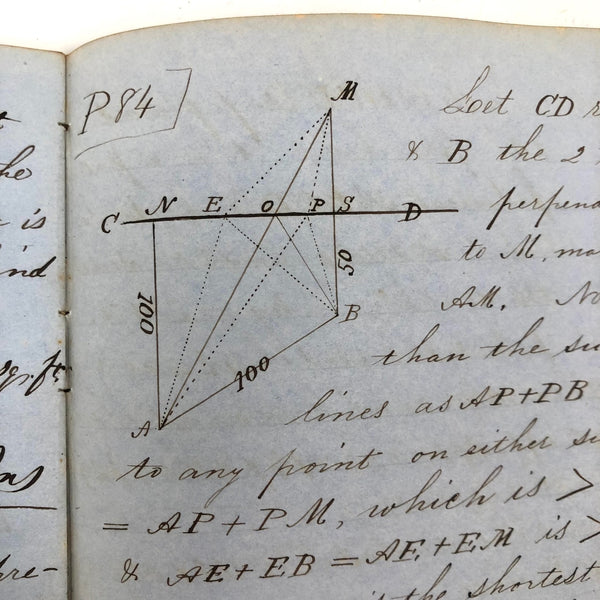 P 84
M
C N E O P S D
100
50
100
A
B
Let CD
& B the 2
to M,
AM. No
than the
lines as AP+PB
to any point on either
= AP+PM, which is >
& AE+EB = AE+EM is >
is the shortest
he
is
ft